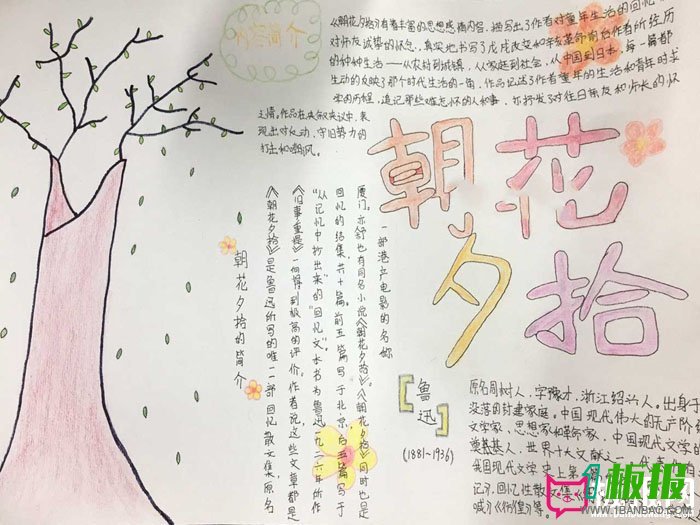 内容简介
《朝花夕拾》有着丰富的思想感情内容,描写出了作者对童年生活的回忆
对怀友诚挚的怀念,真实地书写了戊戌改变和辛亥革命前后作者所经历
的种种生活——从农村到城镇,从家庭到社会,从中国到日本,每一篇都
生动的反映了那个时代生活的一角,作品记述了作者童年的生活和青年时求
学的历程,追记那些难忘怀的人和事,抒发了对往日亲友和师长的怀
之情,作品在夹叙夹议中,表
现出对反动、守旧势力的
打击和嘲讽。
朝花
夕拾
朝花夕拾的简介
《朝花夕拾》是鲁迅所写的唯一一部回忆散文集,原名
《旧事重提》一向得到极高的评价,作者说,这些文章都是
“从记忆中抄出来”的“回忆文”本书为鲁迅一九二六年所作
回忆的结集,共十篇。前五篇写于北京,后五篇写于
厦门。亦舒也有同名小说《朝花夕拾》。《朝花夕拾》同时也是
一部港产电影的名称
【鲁迅】
(1881~1936)
原名周树人,字豫才,浙江绍兴人,出身于
没落的封建家庭。中国现代伟大的无产阶
文学家、思想家和革命家,中国现代文学的
奠基人,世界十大文献之一,代表作
我国现代文学史上第
记》,回忆性散文集《
喊》《彷徨》等。
1板报
WWW.1BANBAO.COM